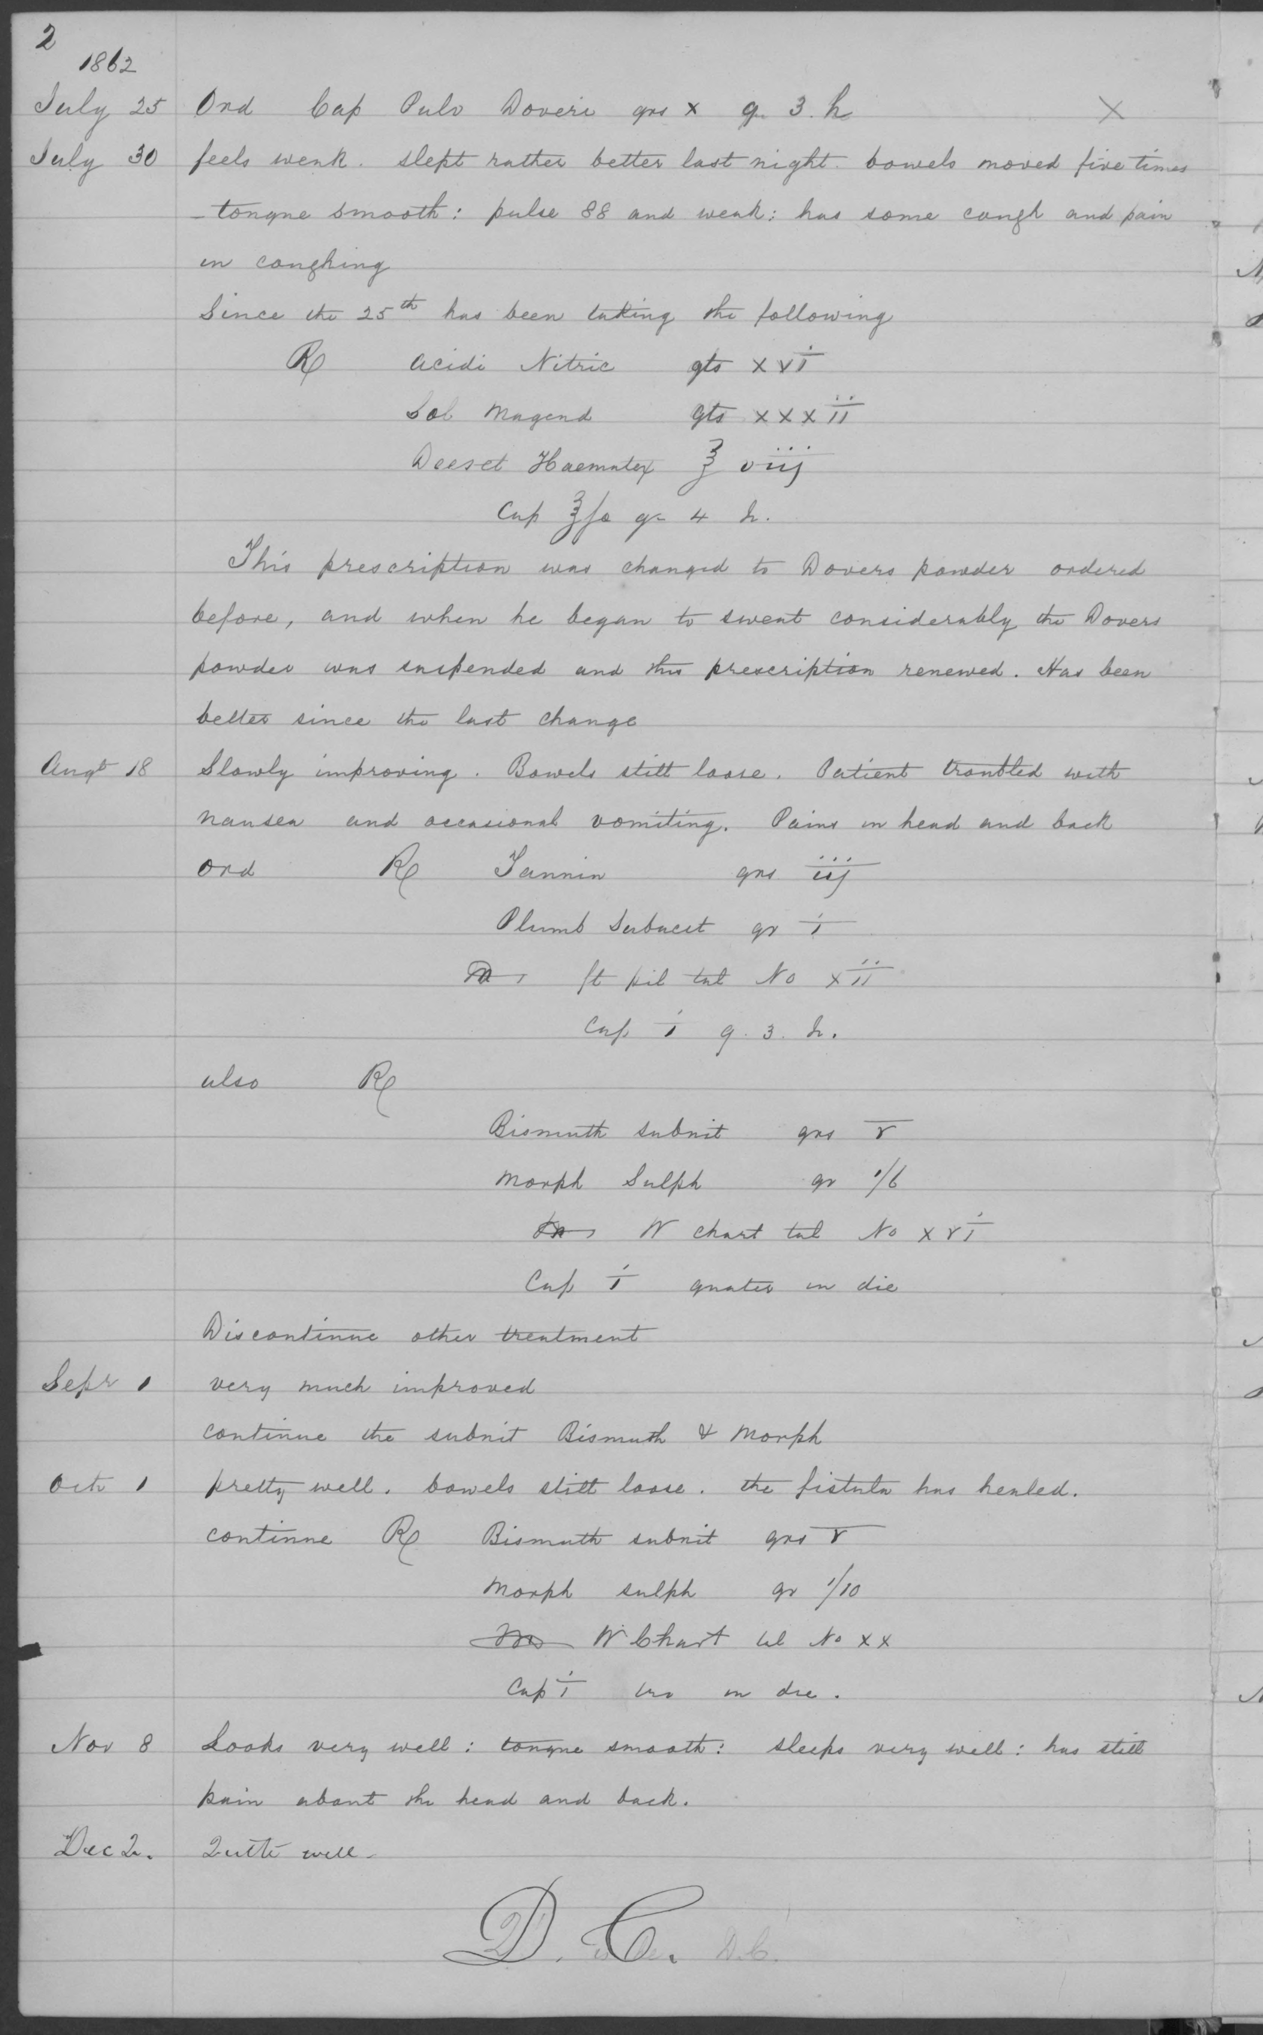 2
1862
July 25 Ord Cap Pulv Doveri grs x q. 3. h X
July 30 feels weak. slept rather better last night. bowels moved five times
_ tongue smooth: pulse 88 and weak: has some cough and pain
in coughing
Since the 25th has been taking the following
Rx Acidi Nitric gts xvi
Sol Magend gts xxxii
Decoct Haematox ℥ viij
Cap ℥ss q 4 h.
This prescription was changed to Dovers powder ordered
before, and when he began to sweat considerably the Dovers
powder was suspended and this prescription renewed. Has been
better since the last change
Augt 18 Slowly improving. Bowels still loose. Patient troubled with
nausea and occasional vomiting. Pains in head and back
Ord Rx Tannin grs iij
Plumb Subacet gr i
M ft pil tal No xii
Cap i q. 3. h.
also Rx
Bismuth subnit grs v
Morph Sulph gr 1/6
M W chart tal No xvi
Cap i quater in die
Discontinue other treatment
Sepr 1 very much improved
continue the subnit Bismuth & Morph
Oct 1 pretty well. bowels still loose. the fistula has healed.
continue Rx Bismuth subnit grs v
Morph sulph gr 1/10
M W Chart tal No xx
Cap i in die.
Nov 8 Looks very well: tongue smooth: sleeps very well: has still
pain about the head and back.
Dec 2. Quite well.
D. C. D.C.